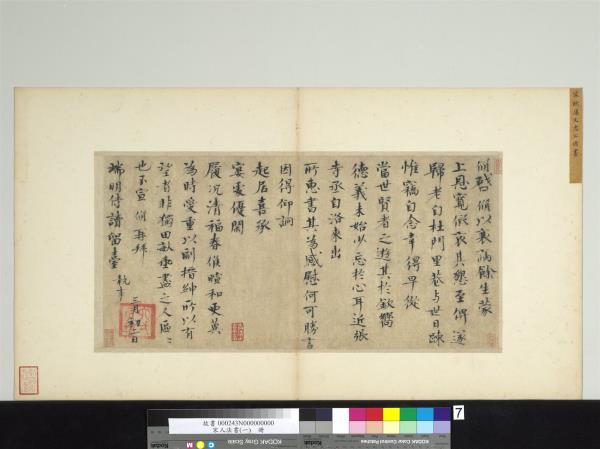 宋歐陽文忠公
脩啟脩以衰病餘生蒙
上恩寬假哀其懇至俾遂
歸老自杜門里巷與世日疎
惟竊自念幸得早從
當世賢者之遊其於欽嚮
德義未始少忘於心耳近張
寺丞自洛來出
所惠書其為感慰何可勝言
因得仰詢
起居喜承
宴處優閑
履況清福春候暄和更冀
為時愛重以副搢紳所以有
望者非獨田畝垂盡之人區區
也不宣脩再拜
端明侍讀留臺執事
三月初二日
故書 000243N000000000
宋人法書(一) 冊
7
KODAK Color Control Patches
KODAK Gray Scale